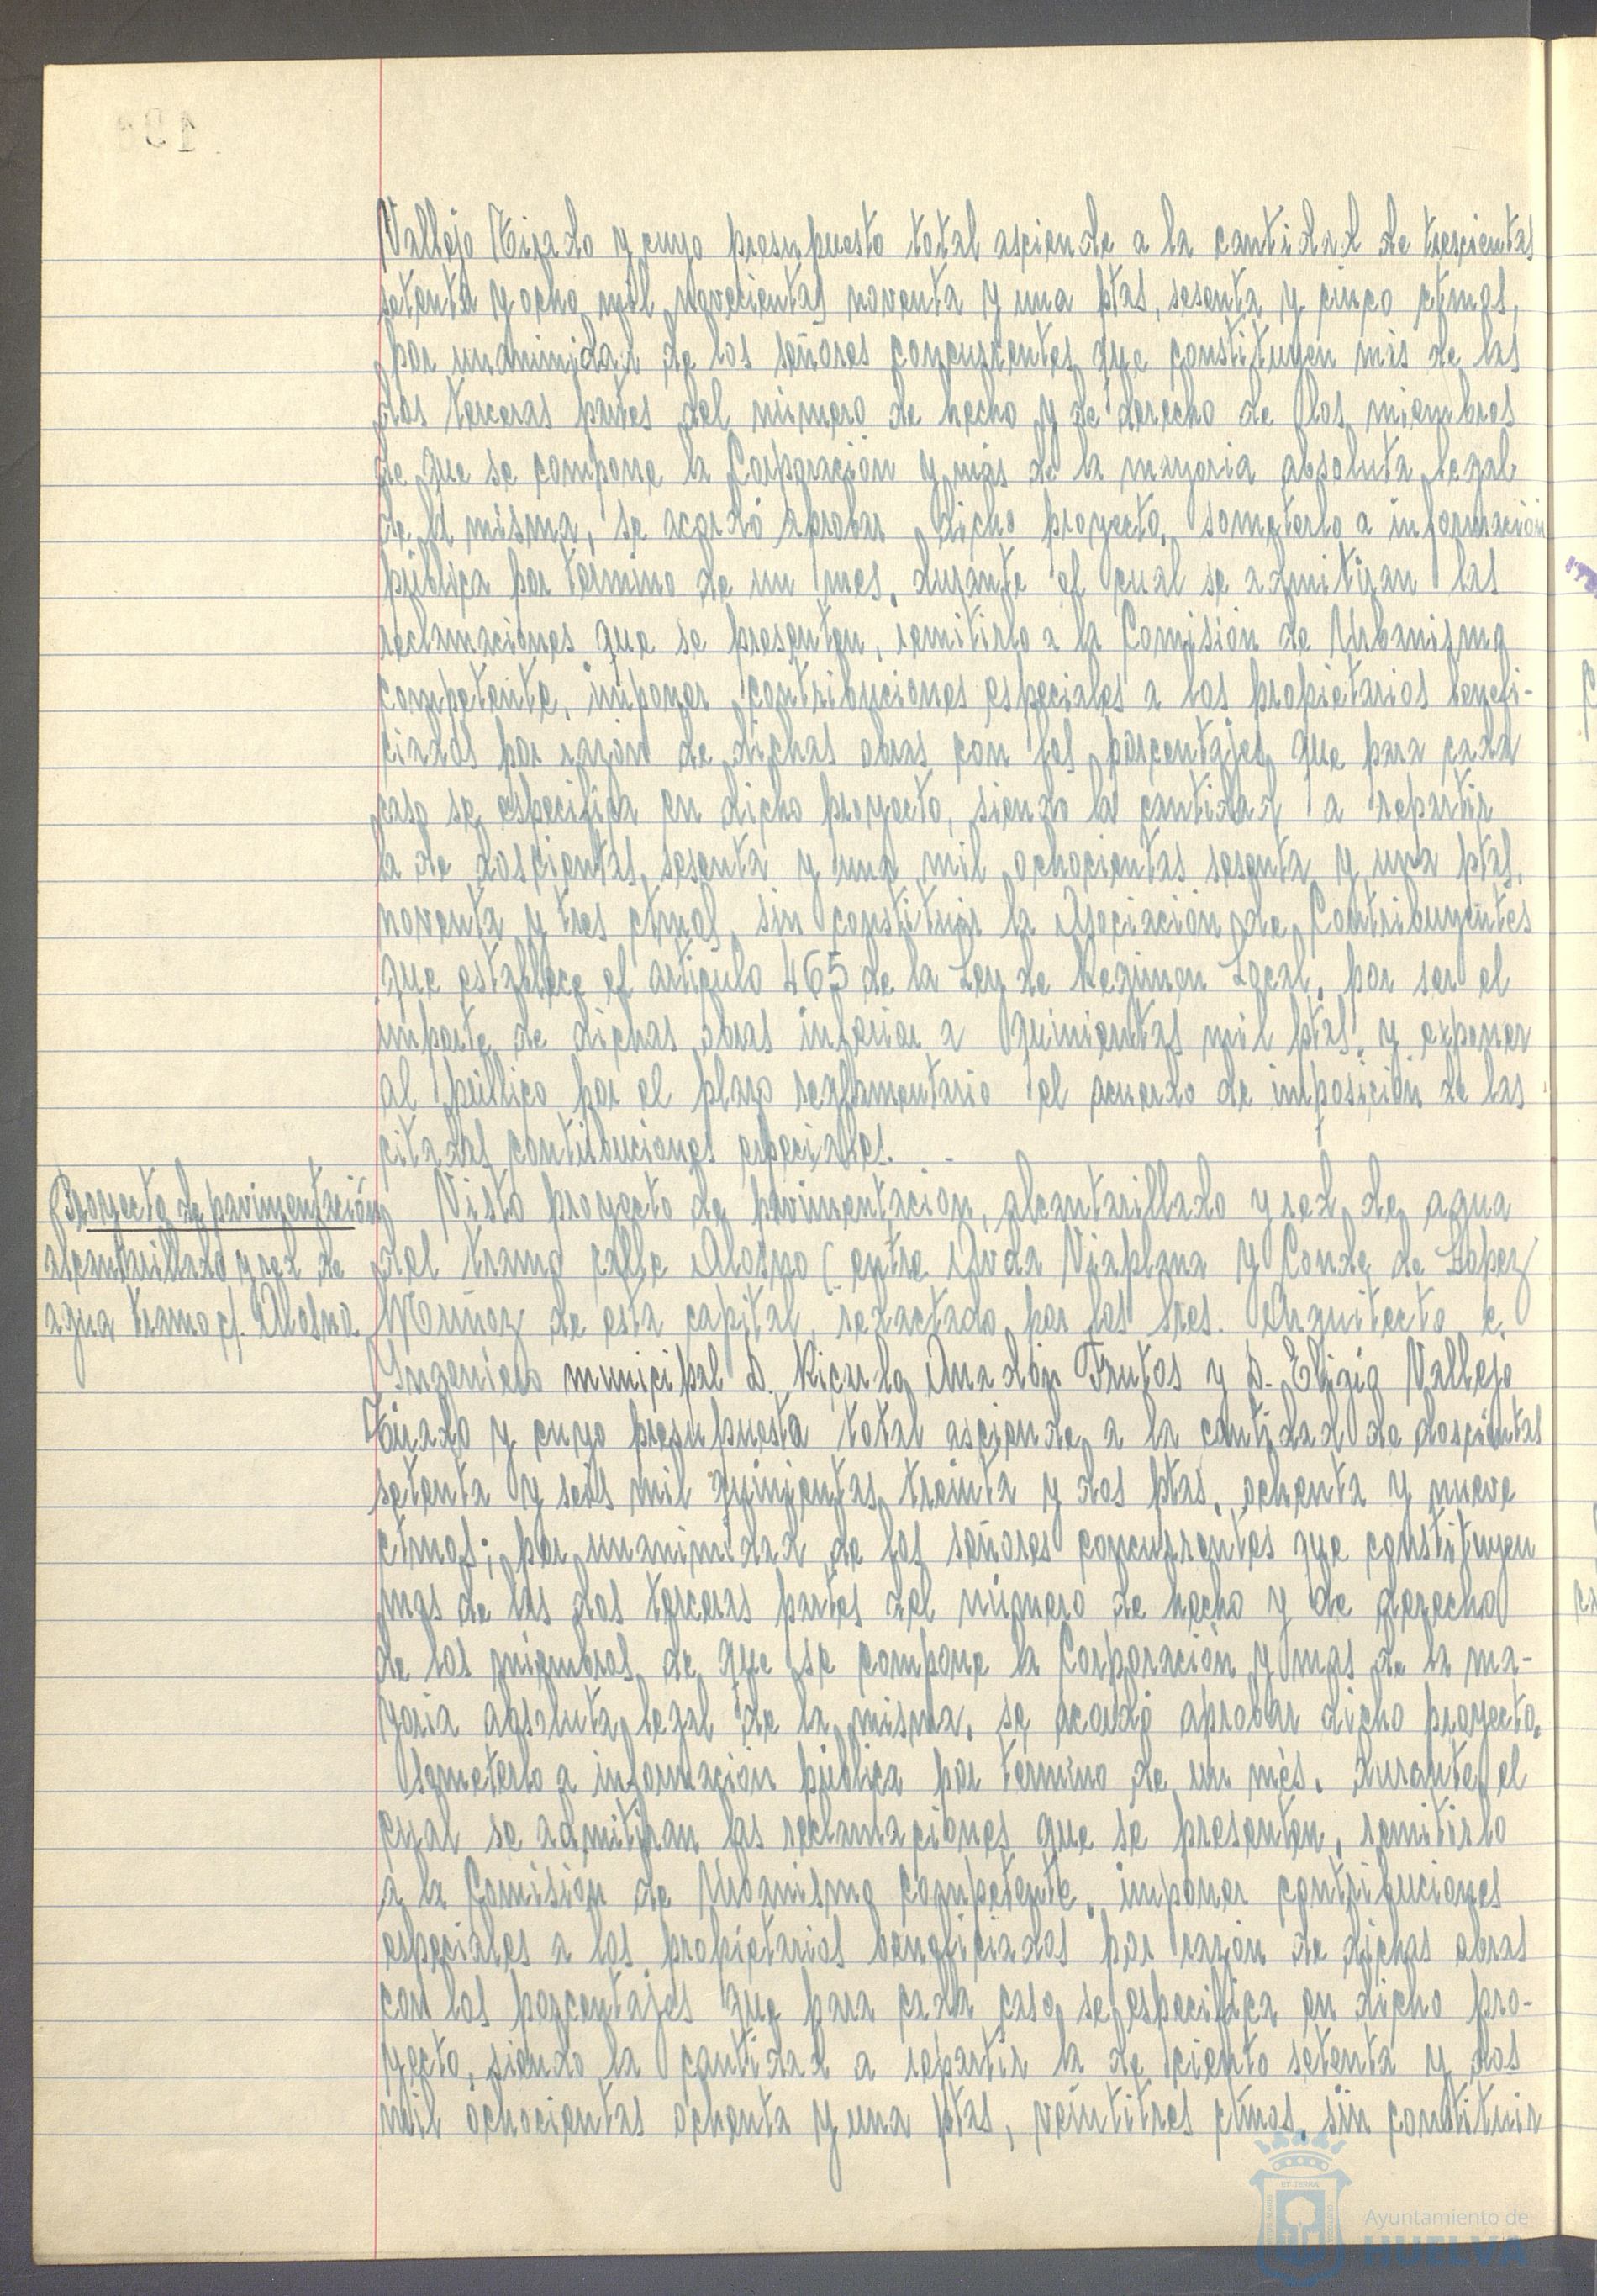 Vallejo Tirado y cuyo presupuesto total asciende a la cantidad de trescientas
setenta y ocho mil novecientas noventa y una ptas, sesenta y cinco ctmos,
por unanimidad de los señores concurrentes que constituyen más de las
dos terceras partes del número de hecho y de derecho de los miembros
de que se compone la Corporación y más de la mayoria absoluta legal
de la misma, se acordó aprobar dicho proyecto, someterlo a información
pública por termino de un mes, durante el cual se admitiran las
reclamaciones que se presenten, remitirlo a la Comisión de Urbanismo
competente, imponer contribuciones especiales a los propietarios benefi-
ciados por razón de dichas obras con los porcentajes que para cada
caso se especifica en dicho proyecto, siendo la cantidad a repartir
la de doscientas sesenta y una mil ochocientas sesenta y una ptas,
noventa y tres ctmos, sin constituir la Asociación de Contribuyentes
que establece el artículo 465 de la Ley de Regimen Local, por ser el
importe de dichas obras inferior a quinientas mil ptas, y exponer
al público por el plazo reglamentario el acuerdo de imposición de las
citadas contribuciones especiales.
Proyecto de pavimentación
alcantarillado y red de
agua tramo c/. Alosno.
Visto proyecto de pavimentación, alcantarillado y red de agua
del tramo calle Alosno (entre Avda Viaplana y Conde de López
Muñoz de esta capital, redactado por los Sres. Arquitecto e
Ingeniero municipal D. Ricardo Anadón Frutos y D. Eligio Vallejo
Tirado y cuyo presupuesto total asciende a la cantidad de doscientas
setenta y seis mil quinientas treinta y dos ptas, ochenta y nueve
ctmos; por unanimidad de los señores concurrentes que constituyen
mas de las dos terceras partes del número de hecho y de derecho
de los miembros de que se compone la Corporación y mas de la ma-
yoria absoluta legal de la misma, se acordó aprobar dicho proyecto,
someterlo a información pública por termino de un més, durante el
cual se admitiran las reclamaciones que se presenten, remitirlo
a la Comisión de Urbanismo competente, imponer contribuciones
especiales a los propietarios beneficiados por razón de dichas obras
con los porcentajes que para cada caso se especifica en dicho pro-
yecto, siendo la cantidad a repartir la de ciento setenta y dos
mil ochocientas ochenta y una ptas, veintitres ctmos, sin constituir
Ayuntamiento de
HUELVA